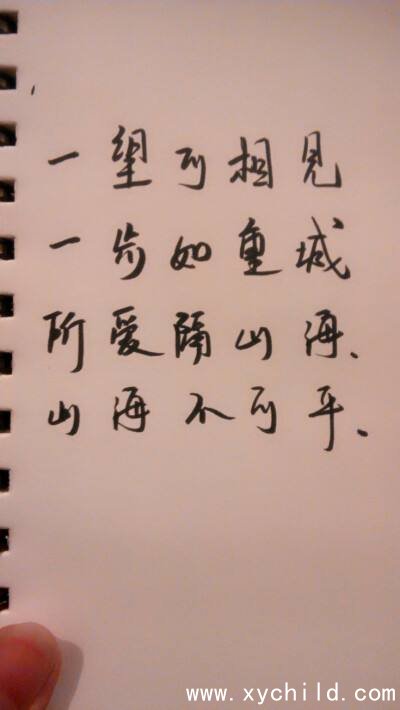 一望可相见
一步如重城
所爱隔山海、
山海不可平、
www.xychild.com